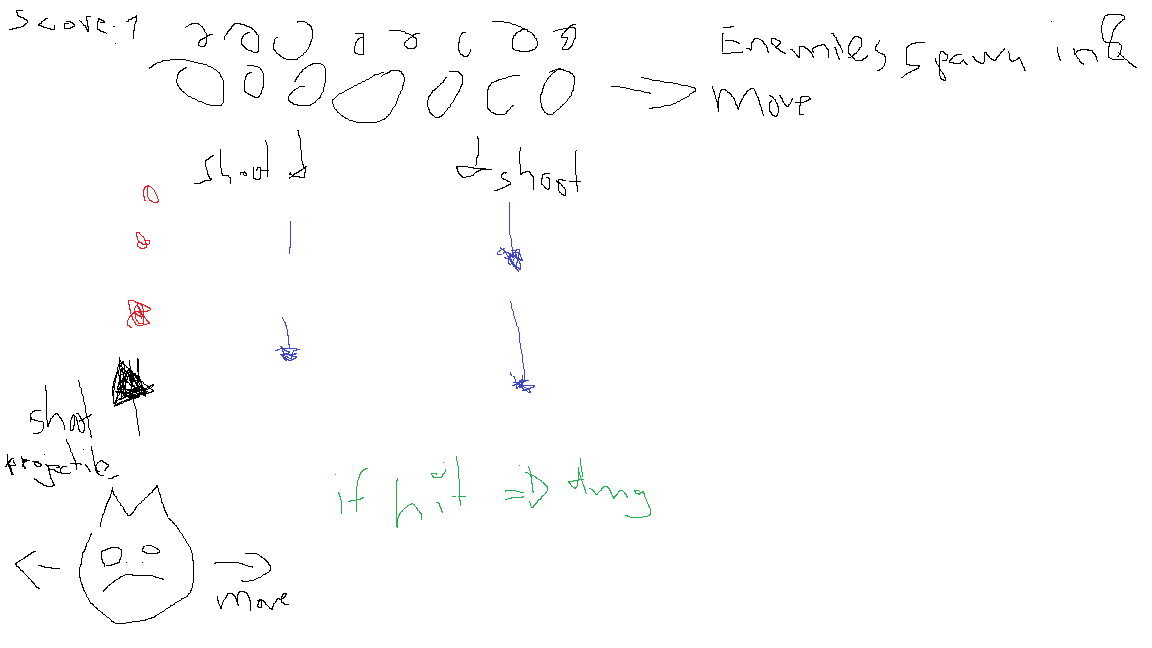 Score: 1
Enemies Spawn in &
move
shoot
shoot
shoot
projectiles
if hit => dmg
move